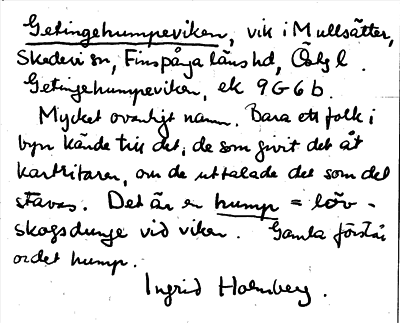 Getingehumpeviken, vik i Mullsätter,
Skedevi sn, Finspånga läns hd, Östgl.
Getingehumpeviken, ek 9G6b.
Mycket ovanligt namn. Bara ett folk i
byn kände till det, de som givit det åt
kartritaren, om de uttalade det som det
stavas. Det är en hump = löv-
skogsdunge vid viken. Gamla förstår
ordet hump.
Ingrid Holmberg.